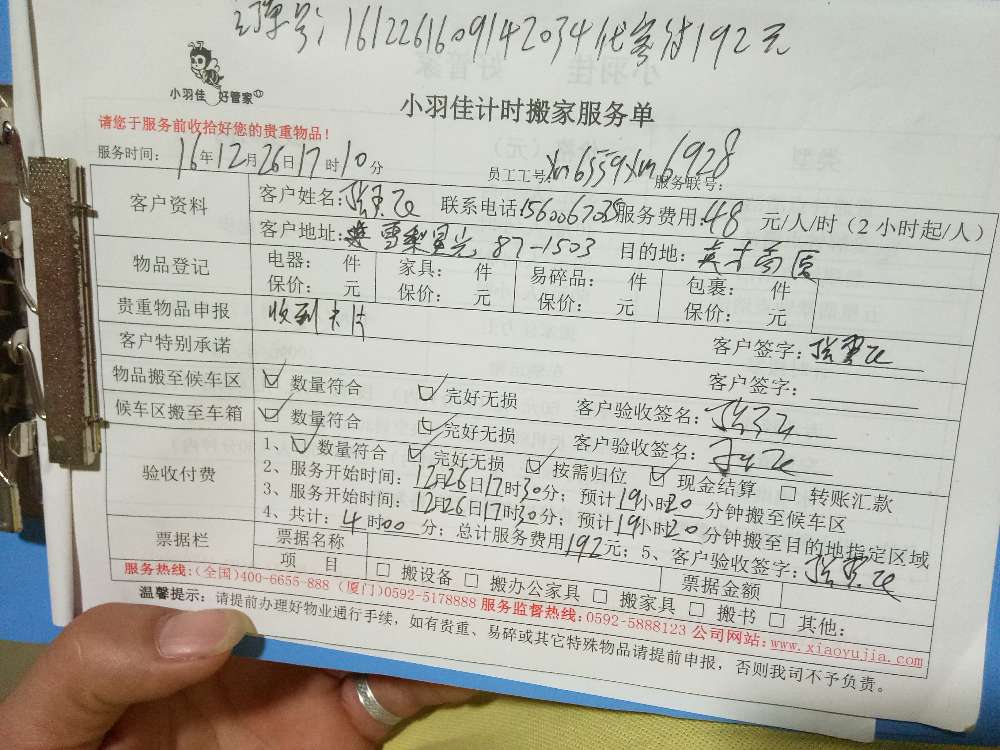 订单号:1612261609142034代客付192元
小羽佳 好管家
小羽佳计时搬家服务单
请您于服务前收拾好您的贵重物品!
服务时间: 16年12月26日17时10分 员工工号: Xm6559 Xm6928 服务联号:
客户资料 客户姓名: 联系电话: 服务费用:48 元/人/时(2小时起/人)
客户地址: 雪梨星光 87-1503 目的地:
物品登记 电器: 件 家具: 件 易碎品: 件 包裹: 件
保价: 元 保价: 元 保价: 元 保价: 元
贵重物品申报 收到卡片 客户签字:
客户特别承诺 客户签字:
物品搬至候车区 ☑ 数量符合 ☑ 完好无损 客户验收签名:
候车区搬至车箱 ☑ 数量符合 ☑ 完好无损 客户验收签名:
验收付费 1、☑ 数量符合 ☑ 完好无损 ☑ 按需归位 ☑ 现金结算 □ 转账汇款
2、服务开始时间:12月26日17时30分;预计19小时20分钟搬至候车区
3、服务开始时间:12月26日17时30分;预计19小时20分钟搬至目的地指定区域
4、共计:4时00分;总计服务费用192元;5、客户验收签字:
票据栏 票据名称 票据金额
项 目 □ 搬设备 □ 搬办公家具 □ 搬家具 □ 搬书 □ 其他:
服务热线:(全国)400-6655-888 (厦门)0592-5178888 服务监督热线:0592-5888123 公司网站:www.xiaoyujia.com
温馨提示:请提前办理好物业通行手续,如有贵重、易碎或其它特殊物品请提前申报,否则我司不予负责。